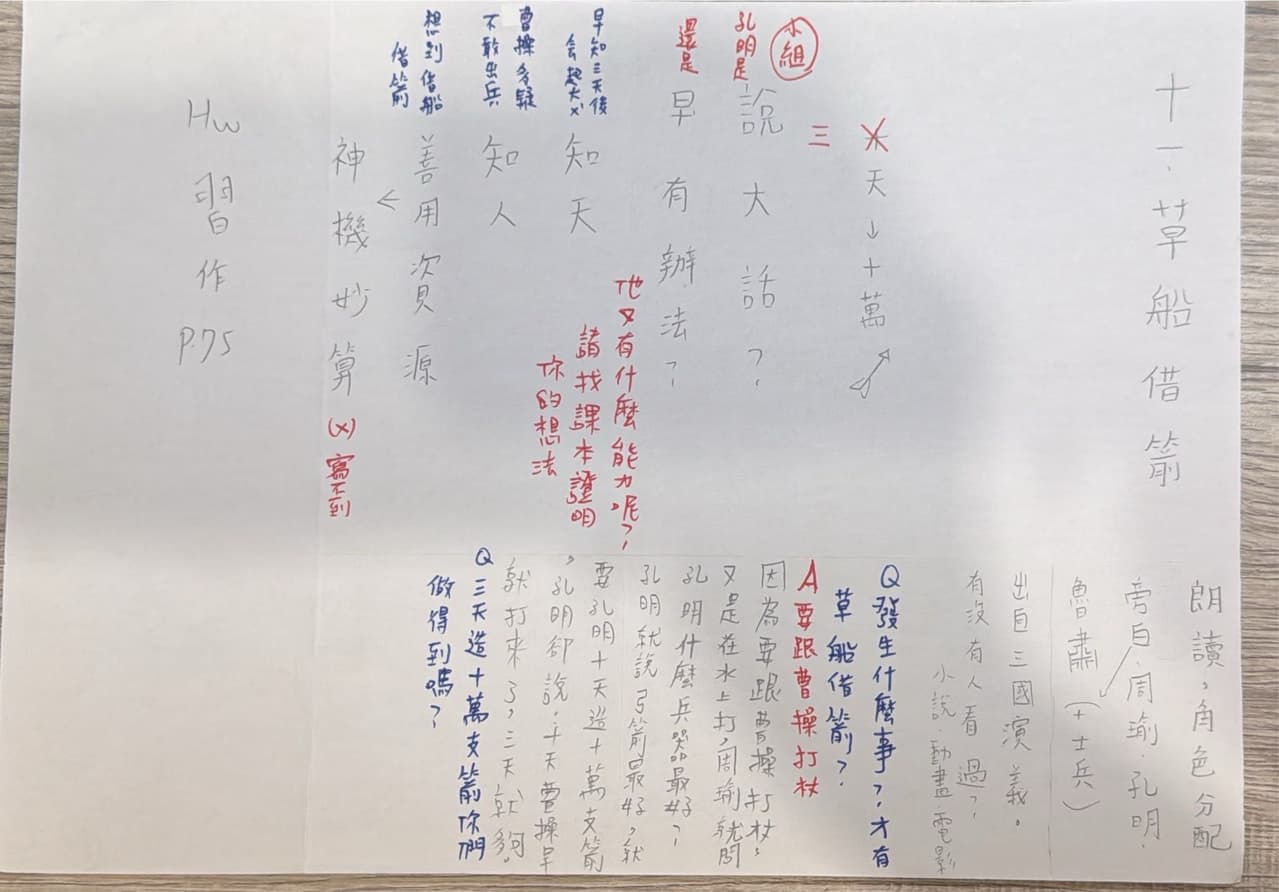 十一、草船借箭
十天→十萬
三
小組
孔明是
說大話？
還是
早有辦法？
他又有什麼能力呢？
請找課本證明
你的想法
早知三天後
會起大
知天
曹操多疑
不敢出兵
知人
想到借船
借箭
善用資源
←
神機妙算(x)寫不到
Hw習作P.75
朗讀，角色分配
旁白、周瑜、孔明、
魯肅(+士兵)
出自三國演義。
有沒有人看過？
小說、動畫、電影
Q發生什麼事？才有
草船借箭？
A要跟曹操打杖
因為要跟曹操打杖，
又是在水上打，周瑜就問
孔明什麼兵器最好？
孔明就說弓箭最好，就
要孔明十天造十萬支箭
，孔明卻說，十天曹操早
就打來了，三天就夠。
Q三天造十萬支箭你們
做得到嗎？